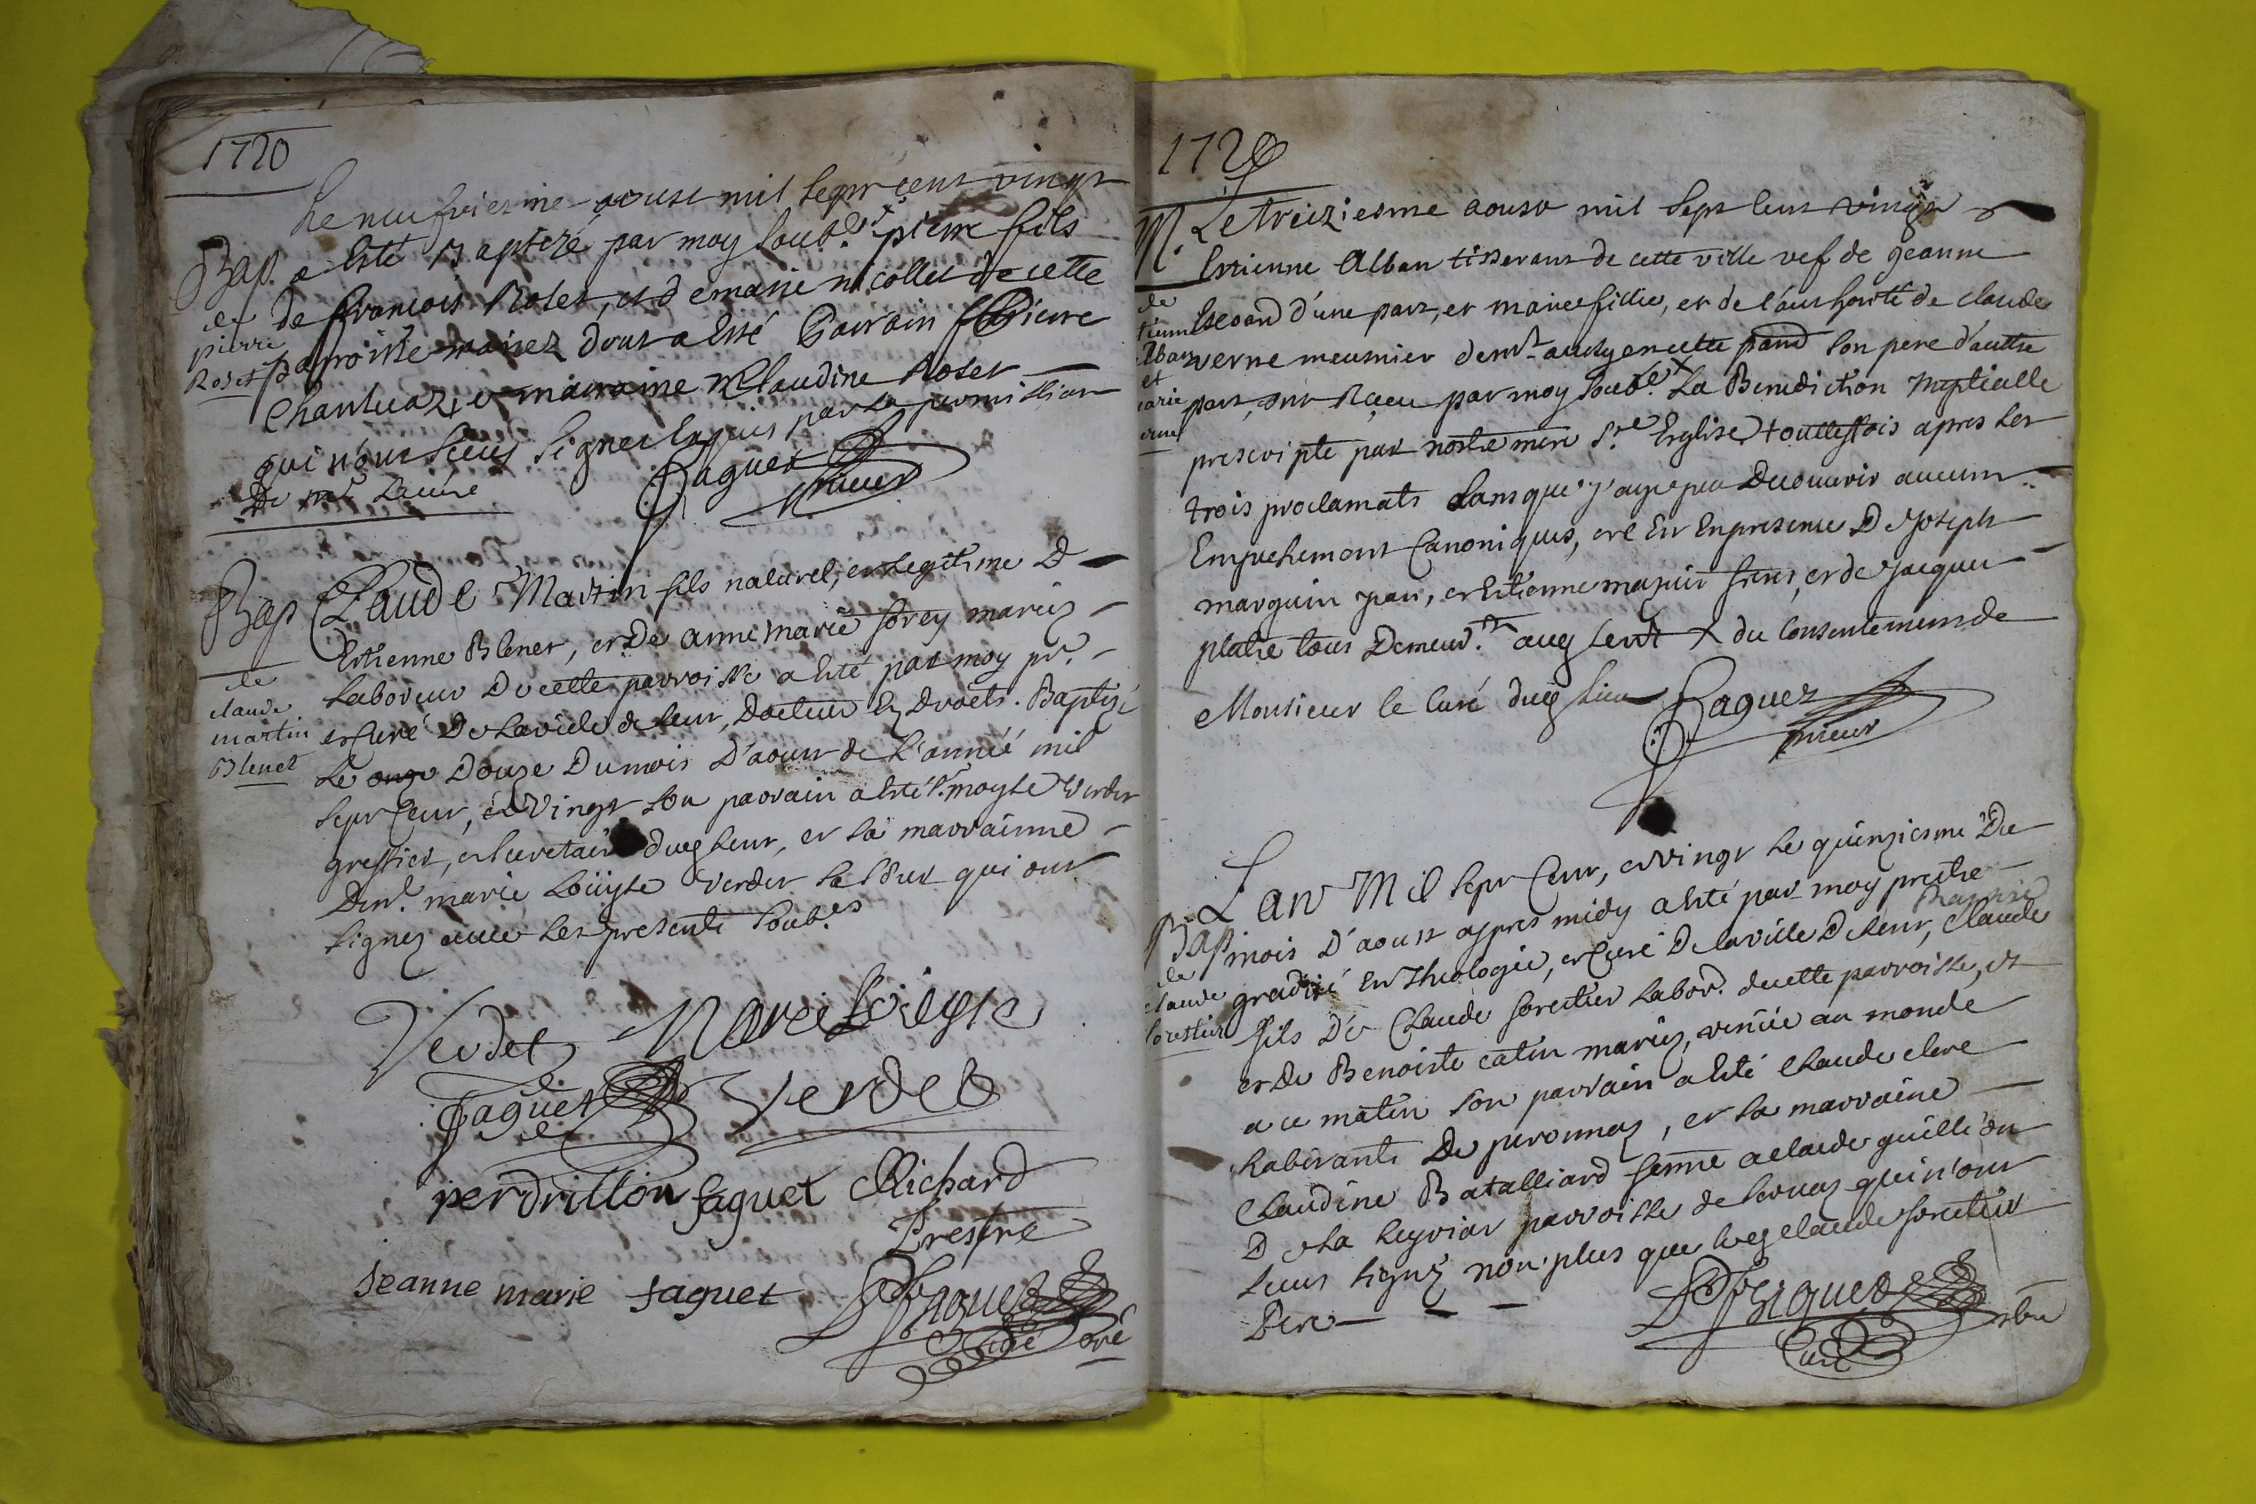 1720
Le neufviesme aoust mil sept cent vingt
Bap. a esté Baptizé par moy soub.é pierre fils
de de françois Roset, et de marie nicollet de cette
pierre Roset parroisse mariez dont a esté Parrain Pierre
et marraine Claudine Roset
qui n'ont sceus signer par la permission
De mr. Le curé faguet
prieur
Bap Claude Martin fils naturel, et legitime D
Estienne Blenet, et De anne marie forey mariez
de Laboreur De cette parroisse a esté par moy pr.
claude et Curé De la ville de , Docteur Es Droets. Baptizé
martin Le onze Douze Du mois D'aoust de L'année mil
Blenet sept Cent, et Vingt son parrain a esté Sr. moyse Verdet
greffier, et secretaire dud , et la marrainne
Dem. marie Loüyse Verdet sa sœur qui ont
signez avec les presents soub.és
Verdet Marei Loüyse
faguet Verdet
perdrillon faguet CRichard
Prestre
Jeanne marie faguet faguet
Curé
1720
M. Le treiziesme aoust mil sept cent vingt
Estienne Alban tisserant de cette ville vef de jeanne
de d'une part, et marie fillie, et de l'authorité de claude
Alban verne meusnier demt. aussy en cette son pere d'autre
et part, ont Reçeu par moy soub.é La Benediction Nuptialle
prescripte par nostre mere S.te Esglise touttesfois apres les
trois proclamats sans que j'aye peu Decouvrir aucun
Empechement Canoniques, et ce En En presence De joseph
marguin , et Estienne , et de jacques
platre tous Demeur. aud du consentement de
Monsieur le Curé dud Lieu faguet
prieur
L'an Mil sept Cent, et vingt le quinziesme Du
Bap mois D'aoust apres midy a esté par moy prestre
Baptisé
de gradué En Theologie, et Curé De la ville De , Claude
claude fils De Claude forestier Labor. de cette parroisse, et
forestier et De Benoiste catin mariez, venue au monde
a ce matin son parrain a esté Claude clere
habitants De peronnaz, et la marraine
Claudine Batalliard femme a claude guillion
De La Leyriar parroisse de servaz qui n'ont
sceus signez non plus que led claude forestier
Pere faguet
Curé